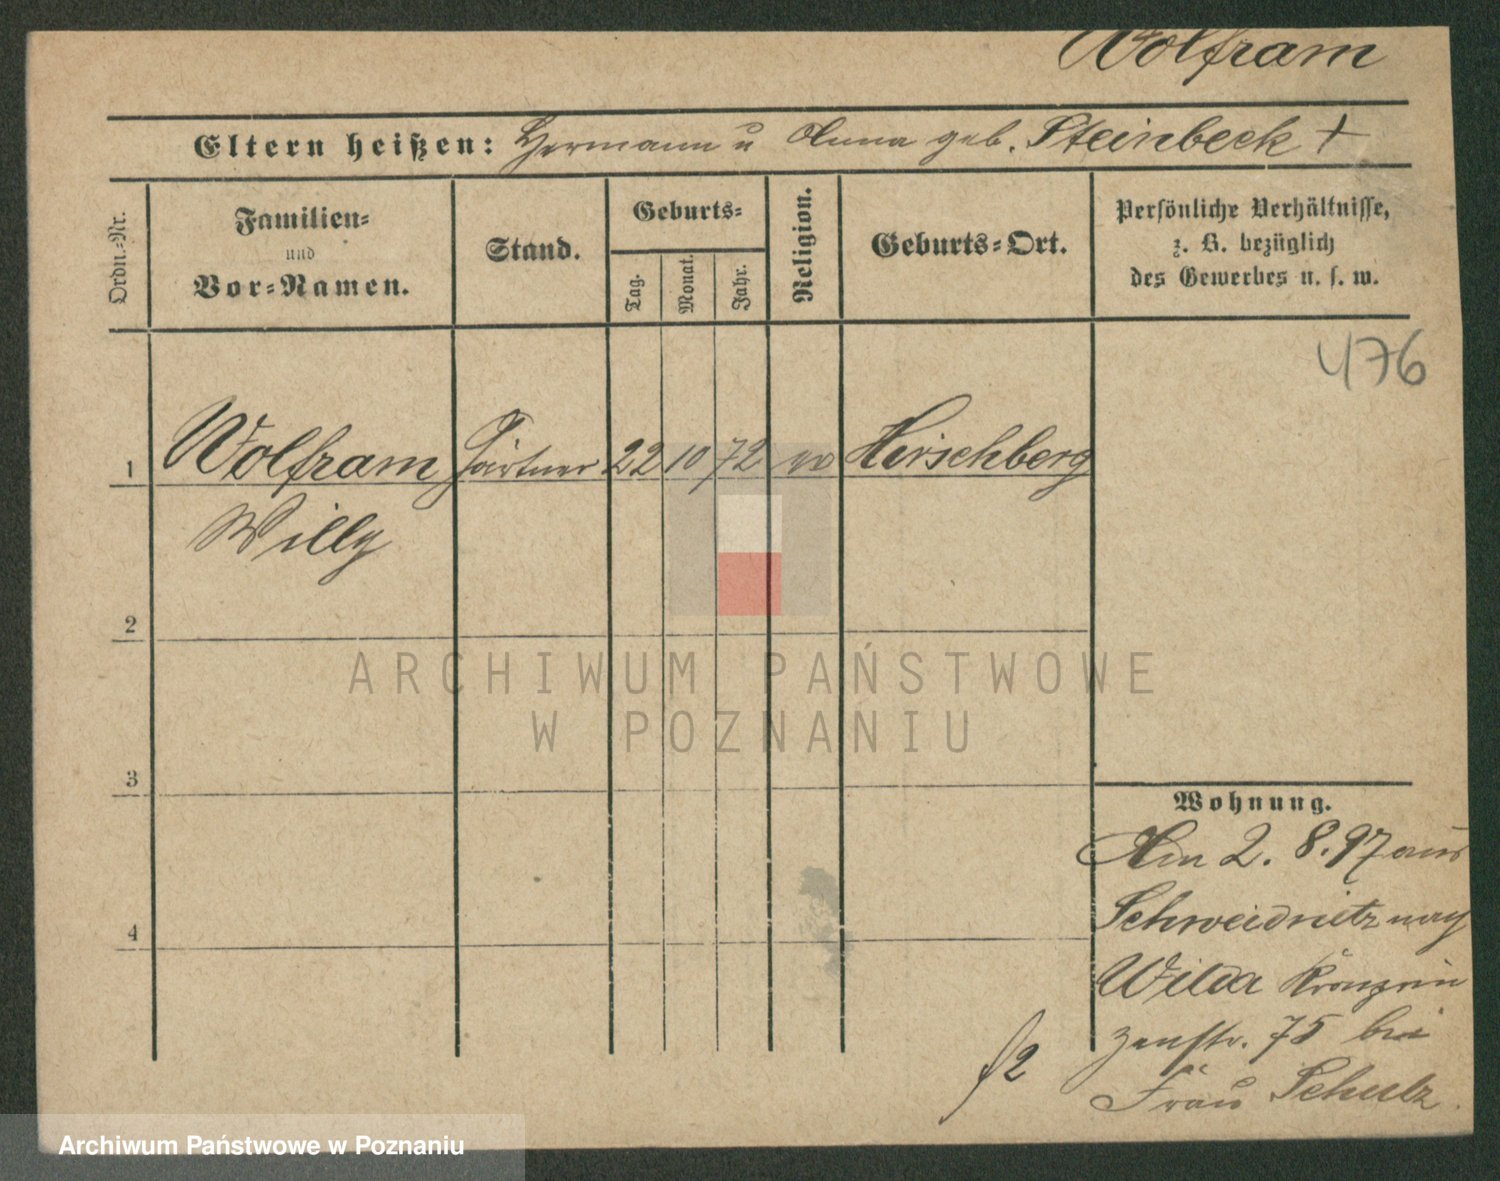 Wolfram
Eltern heißen: Hermann u Anna geb. Steinbeck +
Ordn.-Nr.
Familien-
und
Vor-Namen.
Stand.
Geburts-
Tag.
Monat.
Jahr.
Religion.
Geburts-Ort.
Persönliche Verhältnisse,
z. B. bezüglich
des Gewerbes u. s. w.
476
1 Wolfram Gärtner 22 10 72 Hirschberg
Willy
2
3
4
Wohnung.
Am 2. 8. 97 aus
Schweidnitz nach
Wilda Kronprin
zenstr. 75 bei
Frau Schulz.
ARCHIWUM PAŃSTWOWE
W POZNANIU
Archiwum Państwowe w Poznaniu